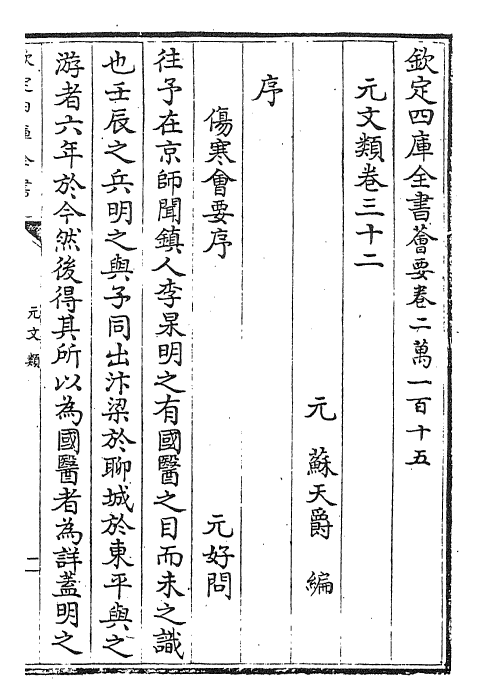 欽定四庫全書薈要卷二萬一百十五
元文類卷三十二
元 蘇天爵 編
序
傷寒會要序
元好問
往予在京師聞鎮人李杲明之有國醫之目而未之識
也壬辰之兵明之與予同出汴梁於聊城於東平與之
游者六年於今然後得其所以為國醫者為詳蓋明之
元文類
二